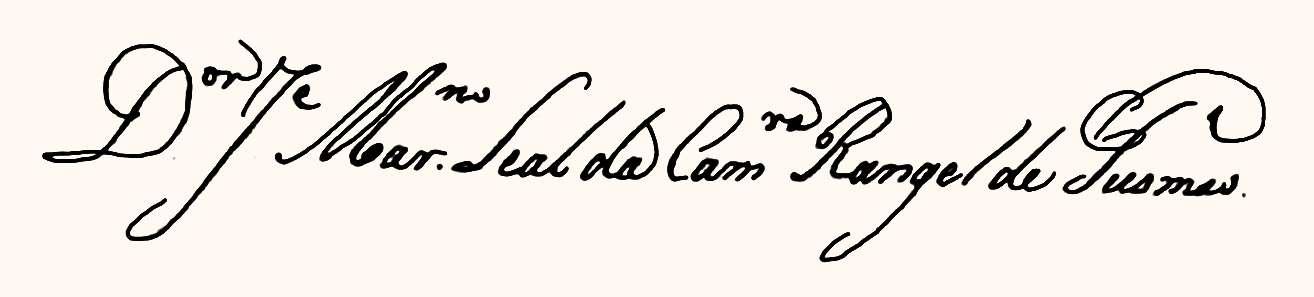 D.or Je Mar.no Leal da Cam.ra Rangel de Gusmao.